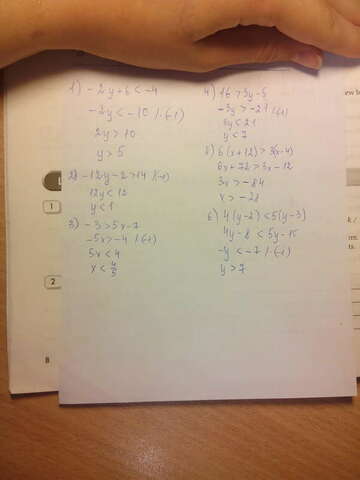 1) -2y+6<-4
-2y<-10 /·(-1)
2y>10
y>5
2) -12y-2>14 /(-1)
12y<12
y<1
3) -3>5x-7
-5x>-4 /·(-1)
5x<4
x<4/5
4) 16>3y-5
-3y>-21 /·(-1)
3y<21
y<7
5) 6(x+12)>3(x-4)
6x+72>3x-12
3x>-84
x>-28
6) 4(y-2)<5(y-3)
4y-8<5y-15
-y<-7 /·(-1)
y>7
1
2
8